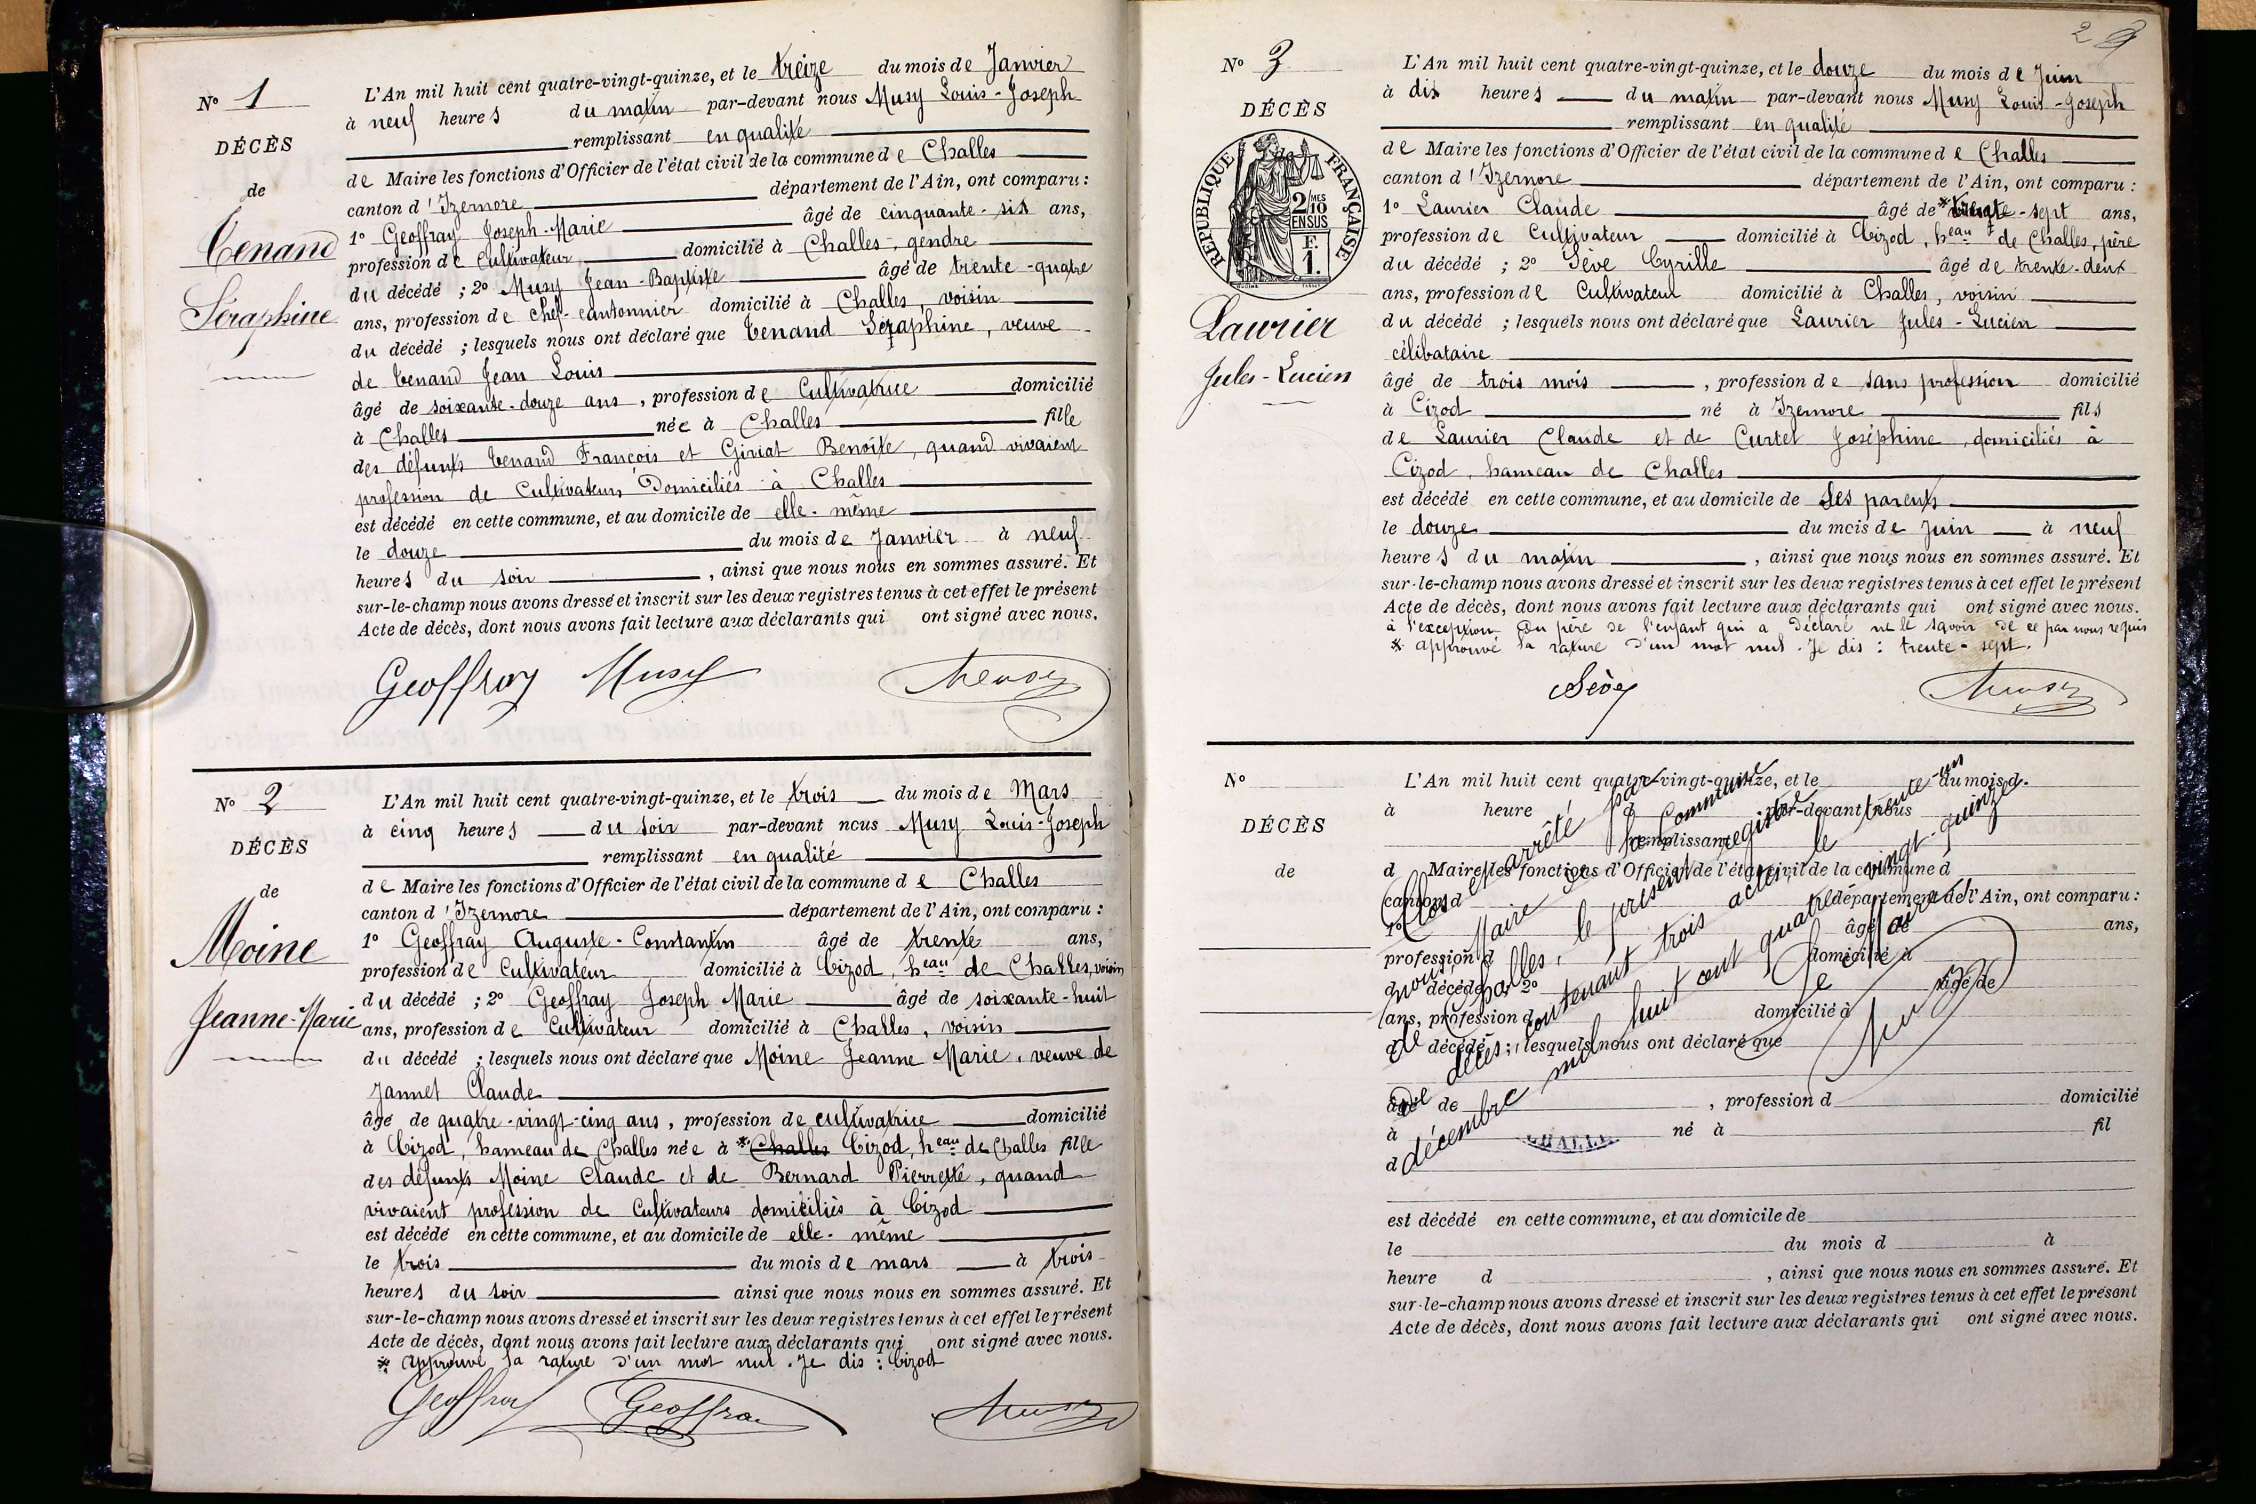 N° 1
DÉCÈS
de
Tenand
Séraphine
L'An mil huit cent quatre-vingt-quinze, et le treize du mois de Janvier
à neuf heures du matin par-devant nous Musy Louis-Joseph
remplissant en qualité
de Maire les fonctions d'Officier de l'état civil de la commune de Challes
canton d'Izernore département de l'Ain, ont comparu :
1° Geoffray Joseph-Marie âgé de cinquante-six ans,
profession de Cultivateur domicilié à Challes, gendre
du décédé ; 2° Musy Jean-Baptiste âgé de trente-quatre
ans, profession de chef-cantonnier domicilié à Challes, voisin
du décédé ; lesquels nous ont déclaré que Tenand Séraphine, veuve
de Tenand Jean Louis
âgé de soixante-douze ans, profession de Cultivatrice domicilié
à Challes née à Challes fille
des défunts Tenand François et Giriat Benoîte, quand vivaient
profession de Cultivateurs Domiciliés à Challes
est décédé en cette commune, et au domicile de elle-même
le douze du mois de Janvier à neuf
heures du soir, ainsi que nous nous en sommes assuré. Et
sur-le-champ nous avons dressé et inscrit sur les deux registres tenus à cet effet le présent
Acte de décès, dont nous avons fait lecture aux déclarants qui ont signé avec nous.
Geoffroy Musy Musy
N° 2
DÉCÈS
de
Moine
Jeanne-Marie
L'An mil huit cent quatre-vingt-quinze, et le trois du mois de Mars
à cinq heures du soir par-devant nous Musy Louis-Joseph
remplissant en qualité
de Maire les fonctions d'Officier de l'état civil de la commune de Challes
canton d'Izernore département de l'Ain, ont comparu :
1° Geoffray Auguste-Constantin âgé de trente ans,
profession de Cultivateur domicilié à Cizod, heau de Challes, voisin
du décédé ; 2° Geoffray Joseph Marie âgé de soixante-huit
ans, profession de Cultivateur domicilié à Challes, voisin
du décédé ; lesquels nous ont déclaré que Moine Jeanne Marie, veuve de
Jannet Claude
âgé de quatre-vingt-cinq ans, profession de cultivatrice domicilié
à Cizod, hameau de Challes née à * Challes Cizod, heau de Challes fille
des défunts Moine Claude et de Bernard Pierrette, quand
vivaient profession de Cultivateurs domiciliés à Cizod
est décédé en cette commune, et au domicile de elle-même
le trois du mois de mars à trois
heures du soir ainsi que nous nous en sommes assuré. Et
sur-le-champ nous avons dressé et inscrit sur les deux registres tenus à cet effet le présent
Acte de décès, dont nous avons fait lecture aux déclarants qui ont signé avec nous.
* approuvé la rature d'un mot nul. Je dis : Cizod
Geoffray Geoffray Musy
2
N° 3
DÉCÈS
RÉPUBLIQUE FRANÇAISE
2/10 MES
EN SUS
F.
1.
Laurier
Jules-Lucien
L'An mil huit cent quatre-vingt-quinze, et le douze du mois de Juin
à dix heures du matin par-devant nous Musy Louis-Joseph
remplissant en qualité
de Maire les fonctions d'Officier de l'état civil de la commune de Challes
canton d'Izernore département de l'Ain, ont comparu :
1° Laurier Claude âgé de * trente-sept ans,
profession de Cultivateur domicilié à Cizod, heau de Challes, père
du décédé ; 2° Sève Cyrille âgé de trente-deux
ans, profession de Cultivateur domicilié à Challes, voisin
du décédé ; lesquels nous ont déclaré que Laurier Jules-Lucien
célibataire
âgé de trois mois, profession de sans profession domicilié
à Cizod né à Izernore fils
de Laurier Claude et de Curtet Joséphine, domiciliés à
Cizod, hameau de Challes
est décédé en cette commune, et au domicile de ses parents
le douze du mois de Juin à neuf
heures du matin, ainsi que nous nous en sommes assuré. Et
sur-le-champ nous avons dressé et inscrit sur les deux registres tenus à cet effet le présent
Acte de décès, dont nous avons fait lecture aux déclarants qui ont signé avec nous.
à l'exception du père de l'enfant qui a déclaré ne le savoir de ce par nous requis
* approuvé la rature d'un mot nul. Je dis : trente-sept.
Sève Musy
N°
DÉCÈS
de
L'An mil huit cent quatre-vingt-quinze, et le du mois d
à heure par-devant nous
remplissant
d Maire les fonctions d'Officier de l'état civil de la commune d
canton d département de l'Ain, ont comparu :
1° âgé de ans,
profession d domicilié à
d décédé ; 2° âgé de
ans, profession d domicilié à
d décédé ; lesquels nous ont déclaré que
âgé de, profession d domicilié
à né à fil
d
est décédé en cette commune, et au domicile de
le du mois d à
heure d, ainsi que nous nous en sommes assuré. Et
sur-le-champ nous avons dressé et inscrit sur les deux registres tenus à cet effet le présent
Acte de décès, dont nous avons fait lecture aux déclarants qui ont signé avec nous.
Clos et arrêté par
nous, Maire de la Commune
de Challes, le présent registre
de décès, contenant trois actes, le trente-un
décembre mil huit cent quatre vingt-quinze.
Le Maire
Musy
CHALLES